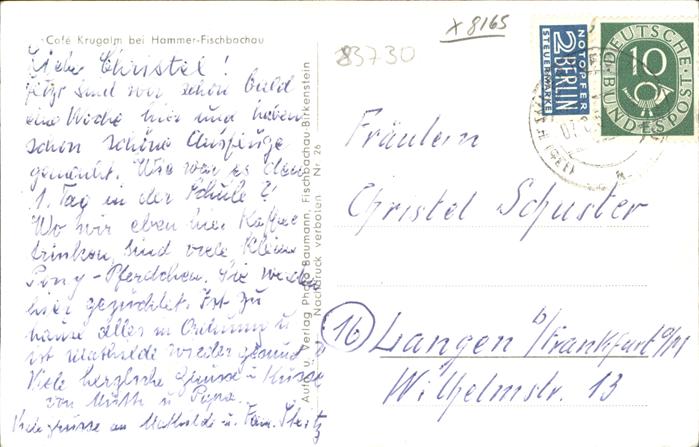 Café Krugalm bei Hammer-Fischbachau
Liebe Christel!
Jetzt sind wir schon bald
eine Woche hier und haben
schon schöne Ausflüge
gemacht. Wie war es denn
1. Tag in der Schule?!
Wo wir eben hier Kaffee
trinken, sind viele kleine
Pony-Pferdchen. Sie werden
hier gezüchtet. Ist zu
hause alles in Ordnung u.
ist Mathilde wieder gesund?
Viele herzliche Grüsse u. Küsse
von Mutti u. Papa.
Viele Grüsse an Mathilde u. Fam.
Auto u. Verlag Photo Baumann, Fischbachau Birkenstein
Nachdruck verboten Nr. 26
X 8165
83730
NOTOPFER
2 BERLIN
STEUERMARKE
DEUTSCHE
10
BUNDESPOST
Fräulein
Christel Schuster
16 Langen b/Frankfurt a/M
Wilhelmstr. 13